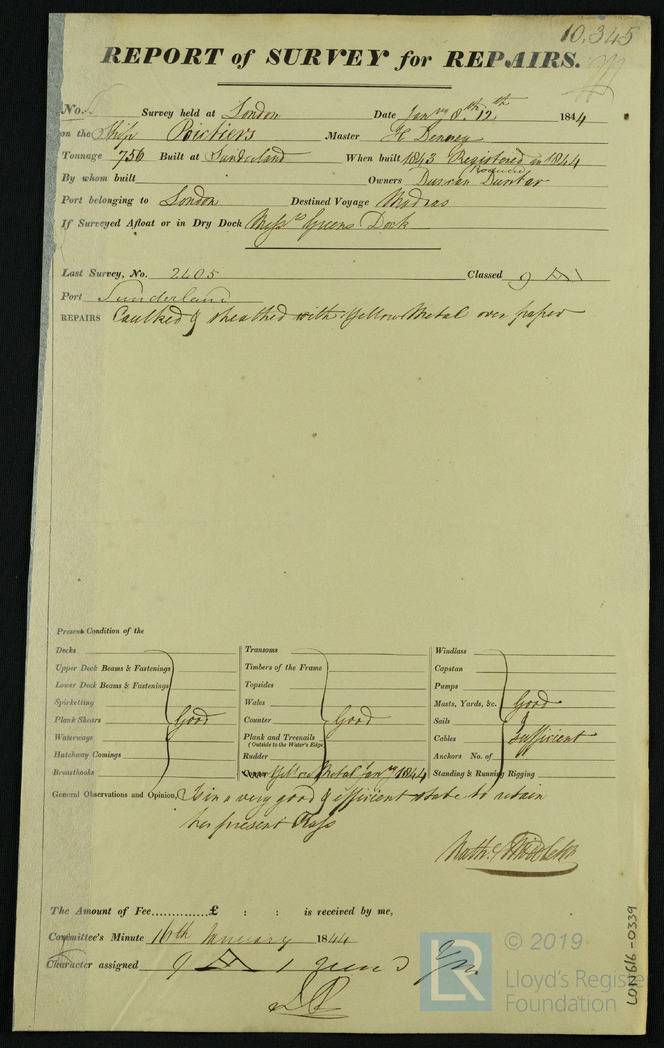 10,345
REPORT of SURVEY for REPAIRS.
No. Survey held at London Date Jany 8th, 12th 1844
on the Ship Poictiers Master
Tonnage 756 Built at Sunderland When built 1843 Registered in 1844
By whom built Owners Duncan Dunbar
Port belonging to London Destined Voyage Madras
If Surveyed Afloat or in Dry Dock Messrs Greens Dock
Last Survey, No. 2405 Classed 9 A
Port Sunderland
REPAIRS Caulked & sheathed with Yellow Metal over paper
Present Condition of the
Decks
Upper Deck Beams & Fastenings
Lower Deck Beams & Fastenings
Spirketting
Plank Shears Good
Waterways
Hatchway Comings
Breasthooks
Transoms
Timbers of the Frame
Topsides
Wales
Counter Good
Plank and Treenails
(Outside to the Water's Edge)
Rudder
Yellow Metal Jany 1844
Windlass
Capstan
Pumps
Masts, Yards, &c. Good
Sails &
Cables Sufficient
Anchors No. of
Standing & Running Rigging
General Observations and Opinion, Is in a very good & efficient state to retain
her present Class
The Amount of Fee..............£ : : is received by me,
Committee's Minute 16th January 1844
Character assigned 9 A 1
© 2019
LR Lloyd's Register
Foundation
LON616-0339